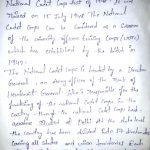 National Cadet Corps Act of 1948. It was
raised on 15 July 1948. The National
Cadet Corps can be considered as a successor
of the university officers training Corps (UOTC)
which was established by the British in
1942.
• The National Cadet Corps is headed by a Director
General, an army officer of the rank of
Lieutenant General, who's responsible for the
functioning of the national Cadet Corps in the
country through the national Cadet Corps head
quarters situated at Delhi. At the state level
the country has been divided into 17 directorates
covering all states and union territories. Each